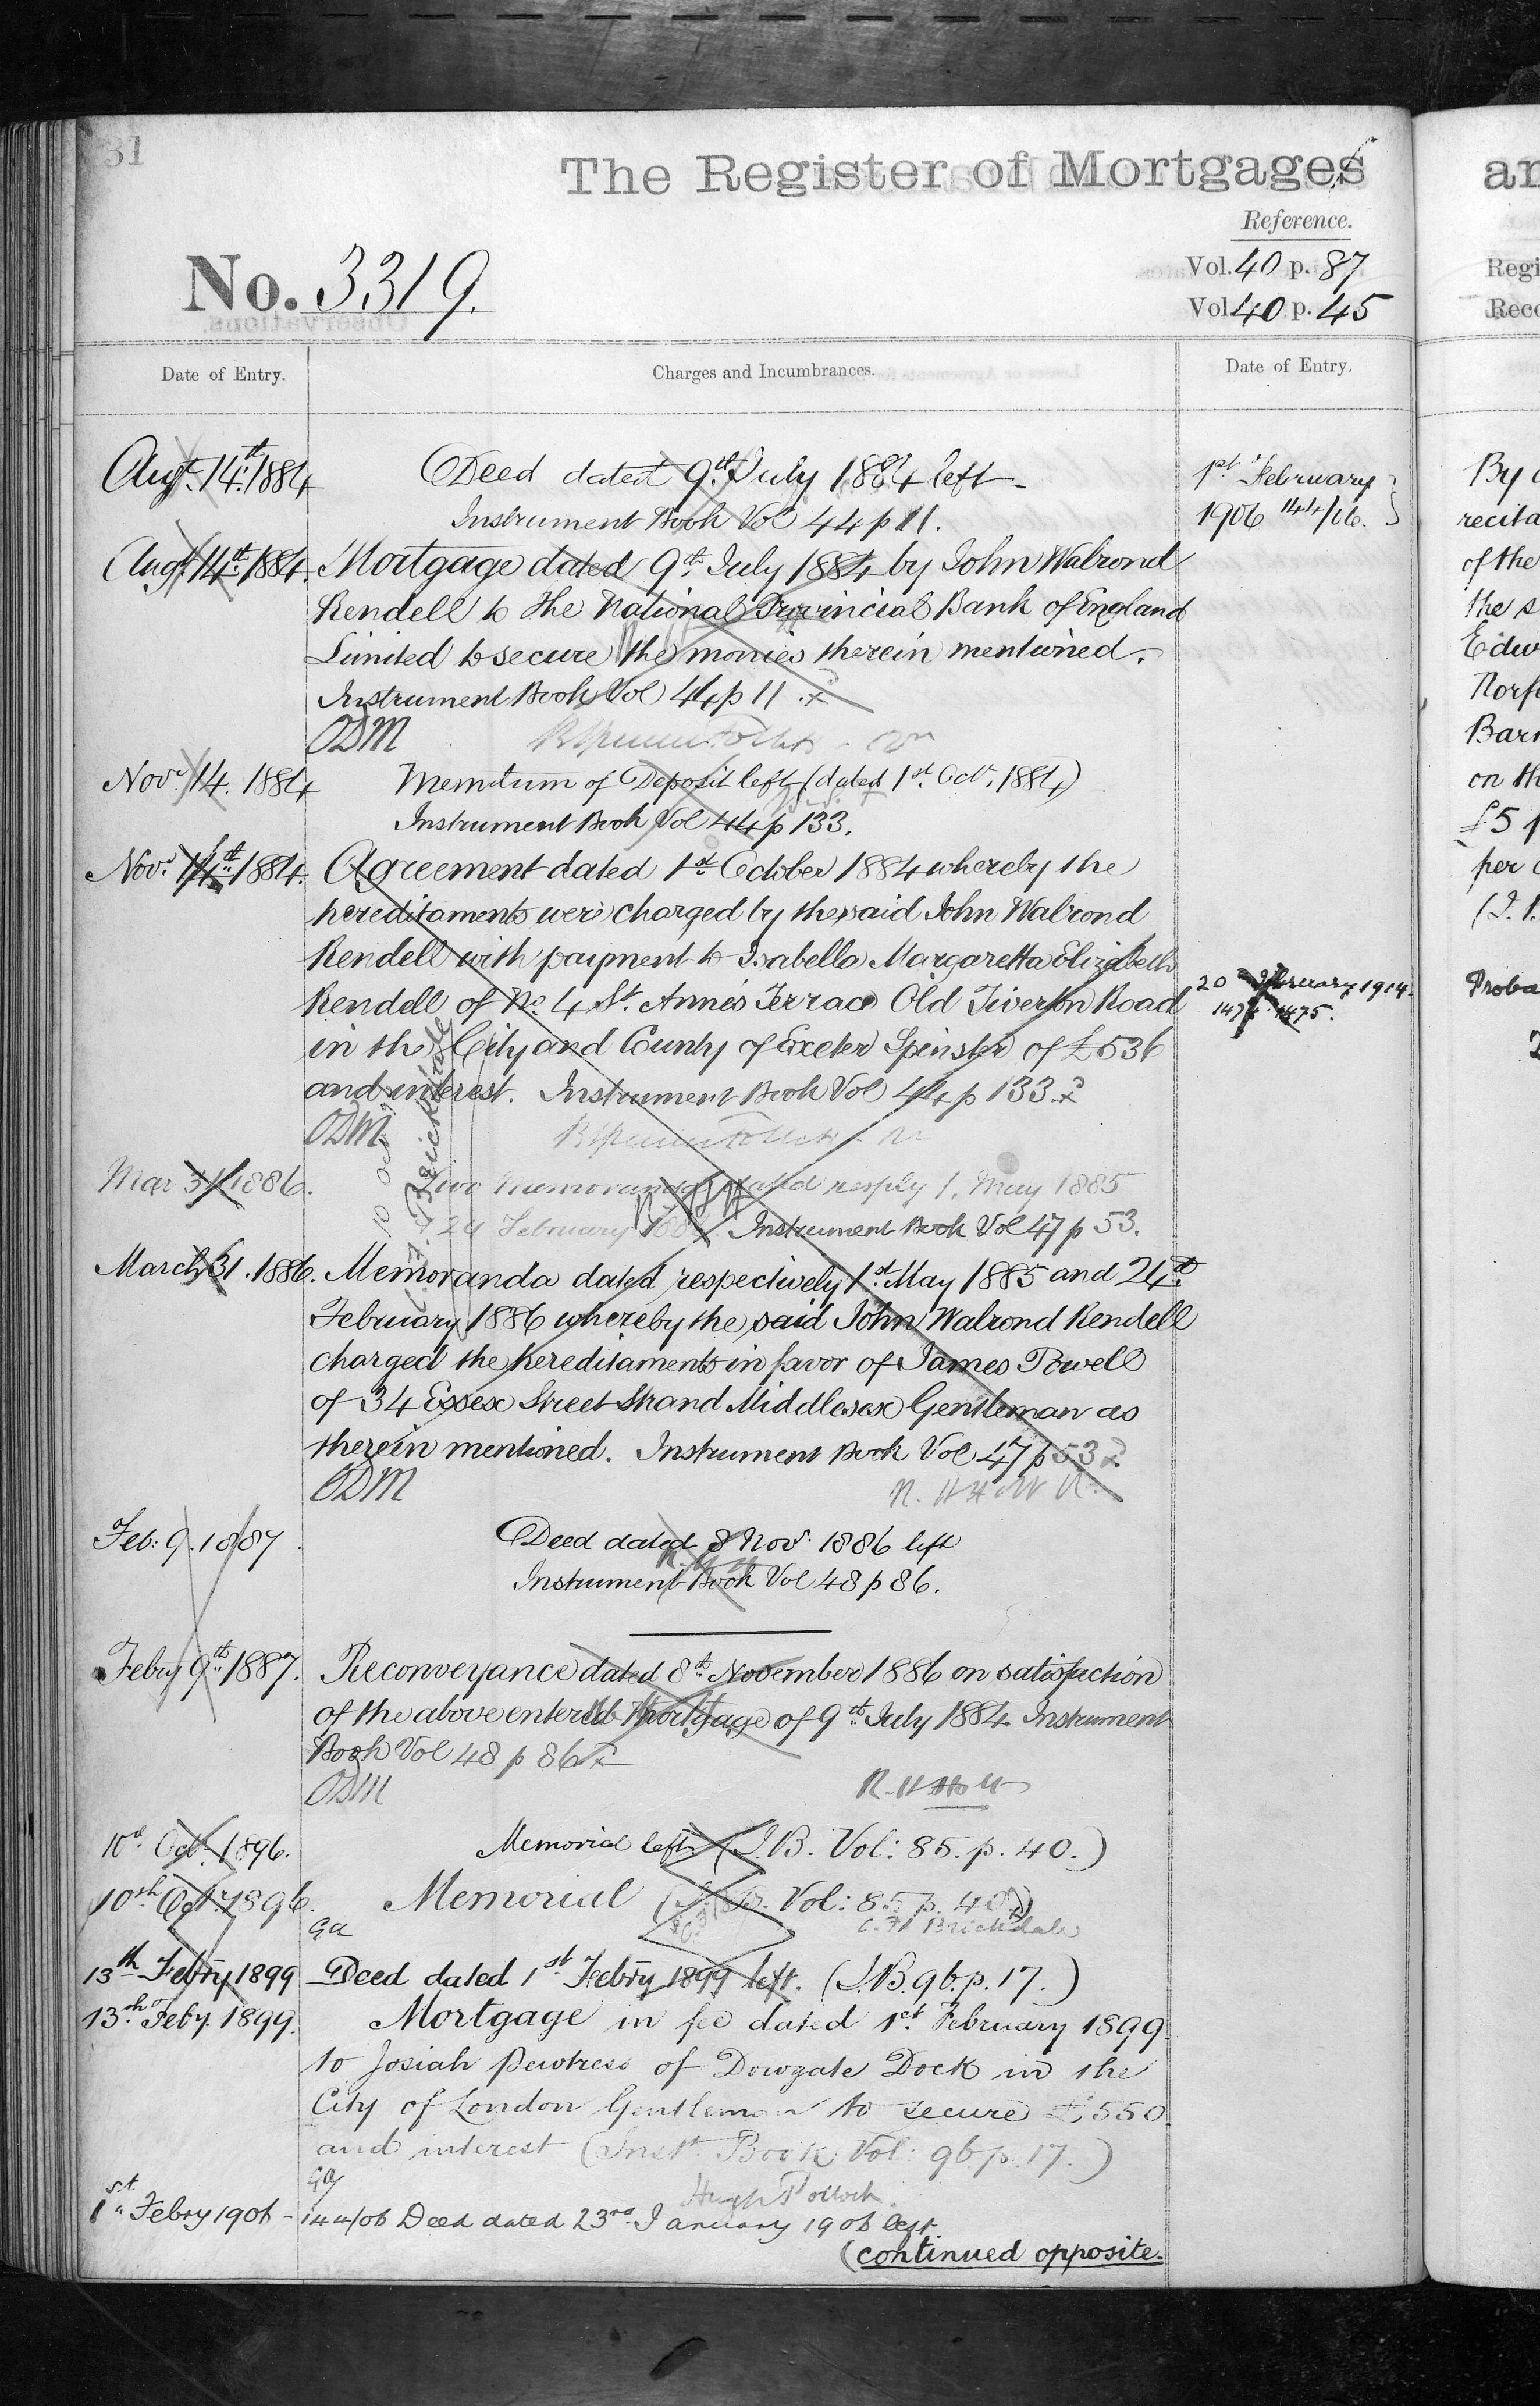 31
The Register of Mortgages
Reference.
No. 3319.
Vol. 40 p. 87
Vol 40 p. 45
Date of Entry.
Charges and Incumbrances.
Date of Entry.
Augt. 14th. 1884
Deed dated 9th July 1884 left
Instrument Book Vol 44 p 11.
Augt. 14th. 1884.
Mortgage dated 9th. July 1884 by John Walrond
Rendell to the National Provincial Bank of England
Limited to secure the monies therein mentioned.
Instrument Book Vol 44 p 11.
ODM
Novr 14. 1884
Memdum of Deposit left (dated 1st. Oct. 1884)
Instrument Book Vol 44 p 133.
Novr. 14th. 1884.
Agreement dated 1st. October 1884 whereby the
hereditaments were charged by the said John Walrond
Rendell with payment to Isabella Margaretta Elizabeth
Rendell of No. 4 St. Anne's Terrace Old Tiverton Road
in the City and County of Exeter Spinster of £536
and interest. Instrument Book Vol 44 p 133.
ODM
Mar 31 1886.
Two Memoranda dated resply 1. May 1885
& 24 February 1886. Instrument Book Vol 47 p 53.
March 31. 1886.
Memoranda dated respectively 1st. May 1885 and 24th
February 1886 whereby the said John Walrond Rendell
charged the hereditaments in favor of James Powell
of 34 Essex Street Strand Middlesex Gentleman as
therein mentioned. Instrument Book Vol 47 p 53
ODM
Feb: 9. 1887
Deed dated 8 Novr. 1886 left
Instrument Book Vol 48 p 86.
Febry 9th. 1887.
Reconveyance dated 8th. November 1886 on satisfaction
of the above entered Mortgage of 9th. July 1884. Instrument
Book Vol 48 p 86
ODM
10th. Oct. 1896.
Memorial left (I.B. Vol: 85. p. 40.)
10th Oct. 1896.
Memorial (I.B. Vol: 85 p. 40.)
Brickdale
13th Febry 1899
Deed dated 1st. Febry 1899 left. (I.B. 96. p. 17.)
13th. Feby. 1899.
Mortgage in fee dated 1st. February 1899
to Josiah Pewtress of Dowgate Dock in the
City of London Gentleman to secure £550
and interest (Inst. Book Vol: 96. p. 17.)
Hugh Pollock.
1st Febry 1906 -
144/06 Deed dated 23rd. January 1906 left.
(continued opposite.
1st February
1906 144/06.
20 February 1914.
1474 1475.
an
Regi
Reco
By
recita
of the
the s
Edw
Norf
Barn
on th
£5
per
Proba